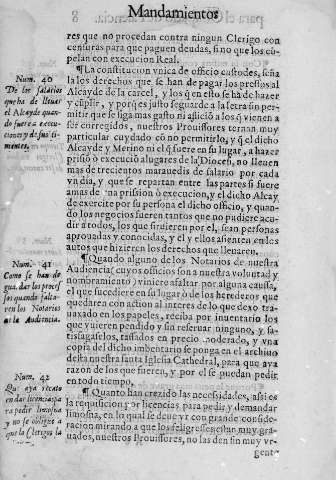 Mandamientos
res que no procedan contra ningun Clerigo con
censuras para que paguen deudas, sino que los cũ
pelan con execucion Real.
Num. 40
De los salarios
que ha de lleuar
el Alcayde quan
do fuere a execu-
ciones y de mãte
nimientos.
¶La constitucion vnica de officio custodes, seña
la los derechos que se han de pagar los presos al
Alcayde de la carcel, y los q̃ en esto se hã de hazer
y cũplir, y porq̃ es justo se guarde a la letra sin per-
mitir que se siga mas gasto ni aflicciõ a los q̃ vienen a
ser corregidos, nuestros Prouissores ternan muy
particular cuydado cõ no permitirlo, y q̃ el dicho
Alcayde y Merino ni el q̃ fuere en su lugar, a hazer
prisiõ o execuciõ a lugares de la Diocesi, no lleuen
mas de trecientos marauedis de salario por cada
vn dia, y que se repartan entre las partes si fuere a
mas de vna prission o execucion, y el dicho Alcay
de exercite por su persona el dicho officio, y quan-
do los negocios fueren tantos que no pudiere acu-
dir a todos, los que siruieren por el, sean personas
aprouadas y conocidas, y el y ellos assienten en los
autos que hizieren los derechos que lleuaren.
Num. 41
Como se han de
guardar los proces
sos quando falta-
ren los Notarios
de la Audiencia.
¶Quando alguno de los Notarios de nuestra
Audiencia (cuyos officios son a nuestra voluntad y
nombramiento) viniere a faltar por alguna causa,
el que sucediere en su lugar o de los herederos que
quedaren con action al interes de lo que dexo tra-
uaxado en los papeles, reciba por inuentario los
que vuieren pendido y sin reseruar ninguno, y sa-
tisfagaselos, tassados en precio moderado, y vna
copia del dicho imbentario se ponga en el archiuo
desta nuestra santa Iglesia Cathedral, para que aya
razon de los que fueren, y por el se puedan pedir
en todo tiempo.
Num. 42
Que aya recato
en dar licencias pa
ra pedir limosna
y no se obligue a
que la Clerigos la
¶Quanto han crezido las necesidades, assi es
la requisicion por licencias para pedir y demandar
limosna, en lo qual se deue yr con grande conside-
racion mirando a que los feligreses estan muy gra-
uados, nuestros Prouissores, no las den sin muy vr-
gente